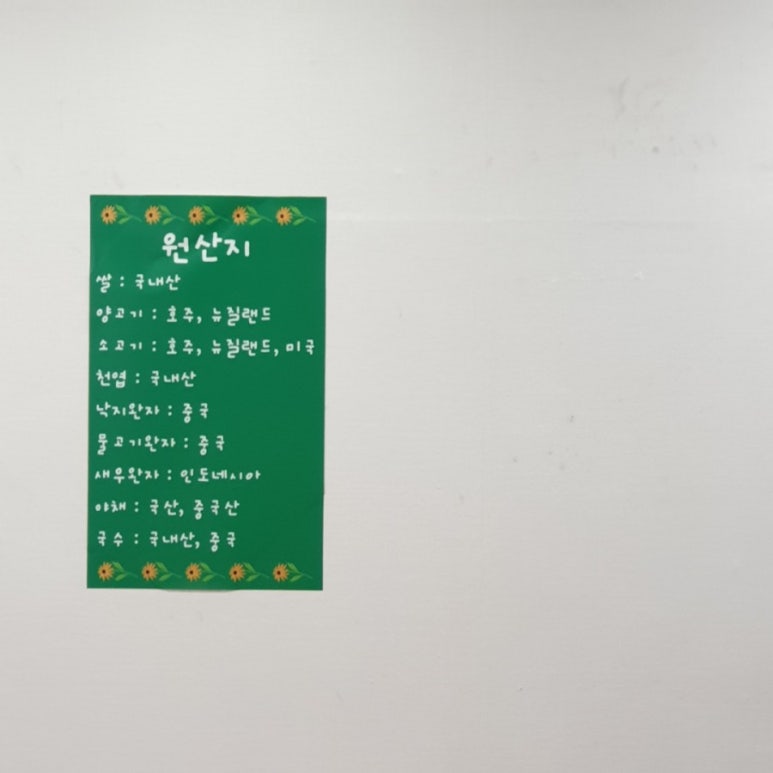 원산지
쌀 : 국내산
양고기 : 호주, 뉴질랜드
소고기 : 호주, 뉴질랜드, 미국
천엽 : 국내산
낙지완자 : 중국
물고기완자 : 중국
새우완자 : 인도네시아
야채 : 국산, 중국산
국수 : 국내산, 중국